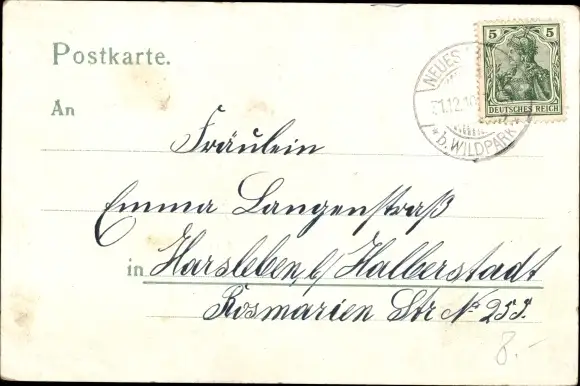 Postkarte.
An
NEUES
5 5
31.12.10
DEUTSCHES REICH
* b. WILDPARK *
Fräulein
Emma Langenstraß
in Harsleben, b/ Halberstadt
Rosmarien Str № 253.
8.-